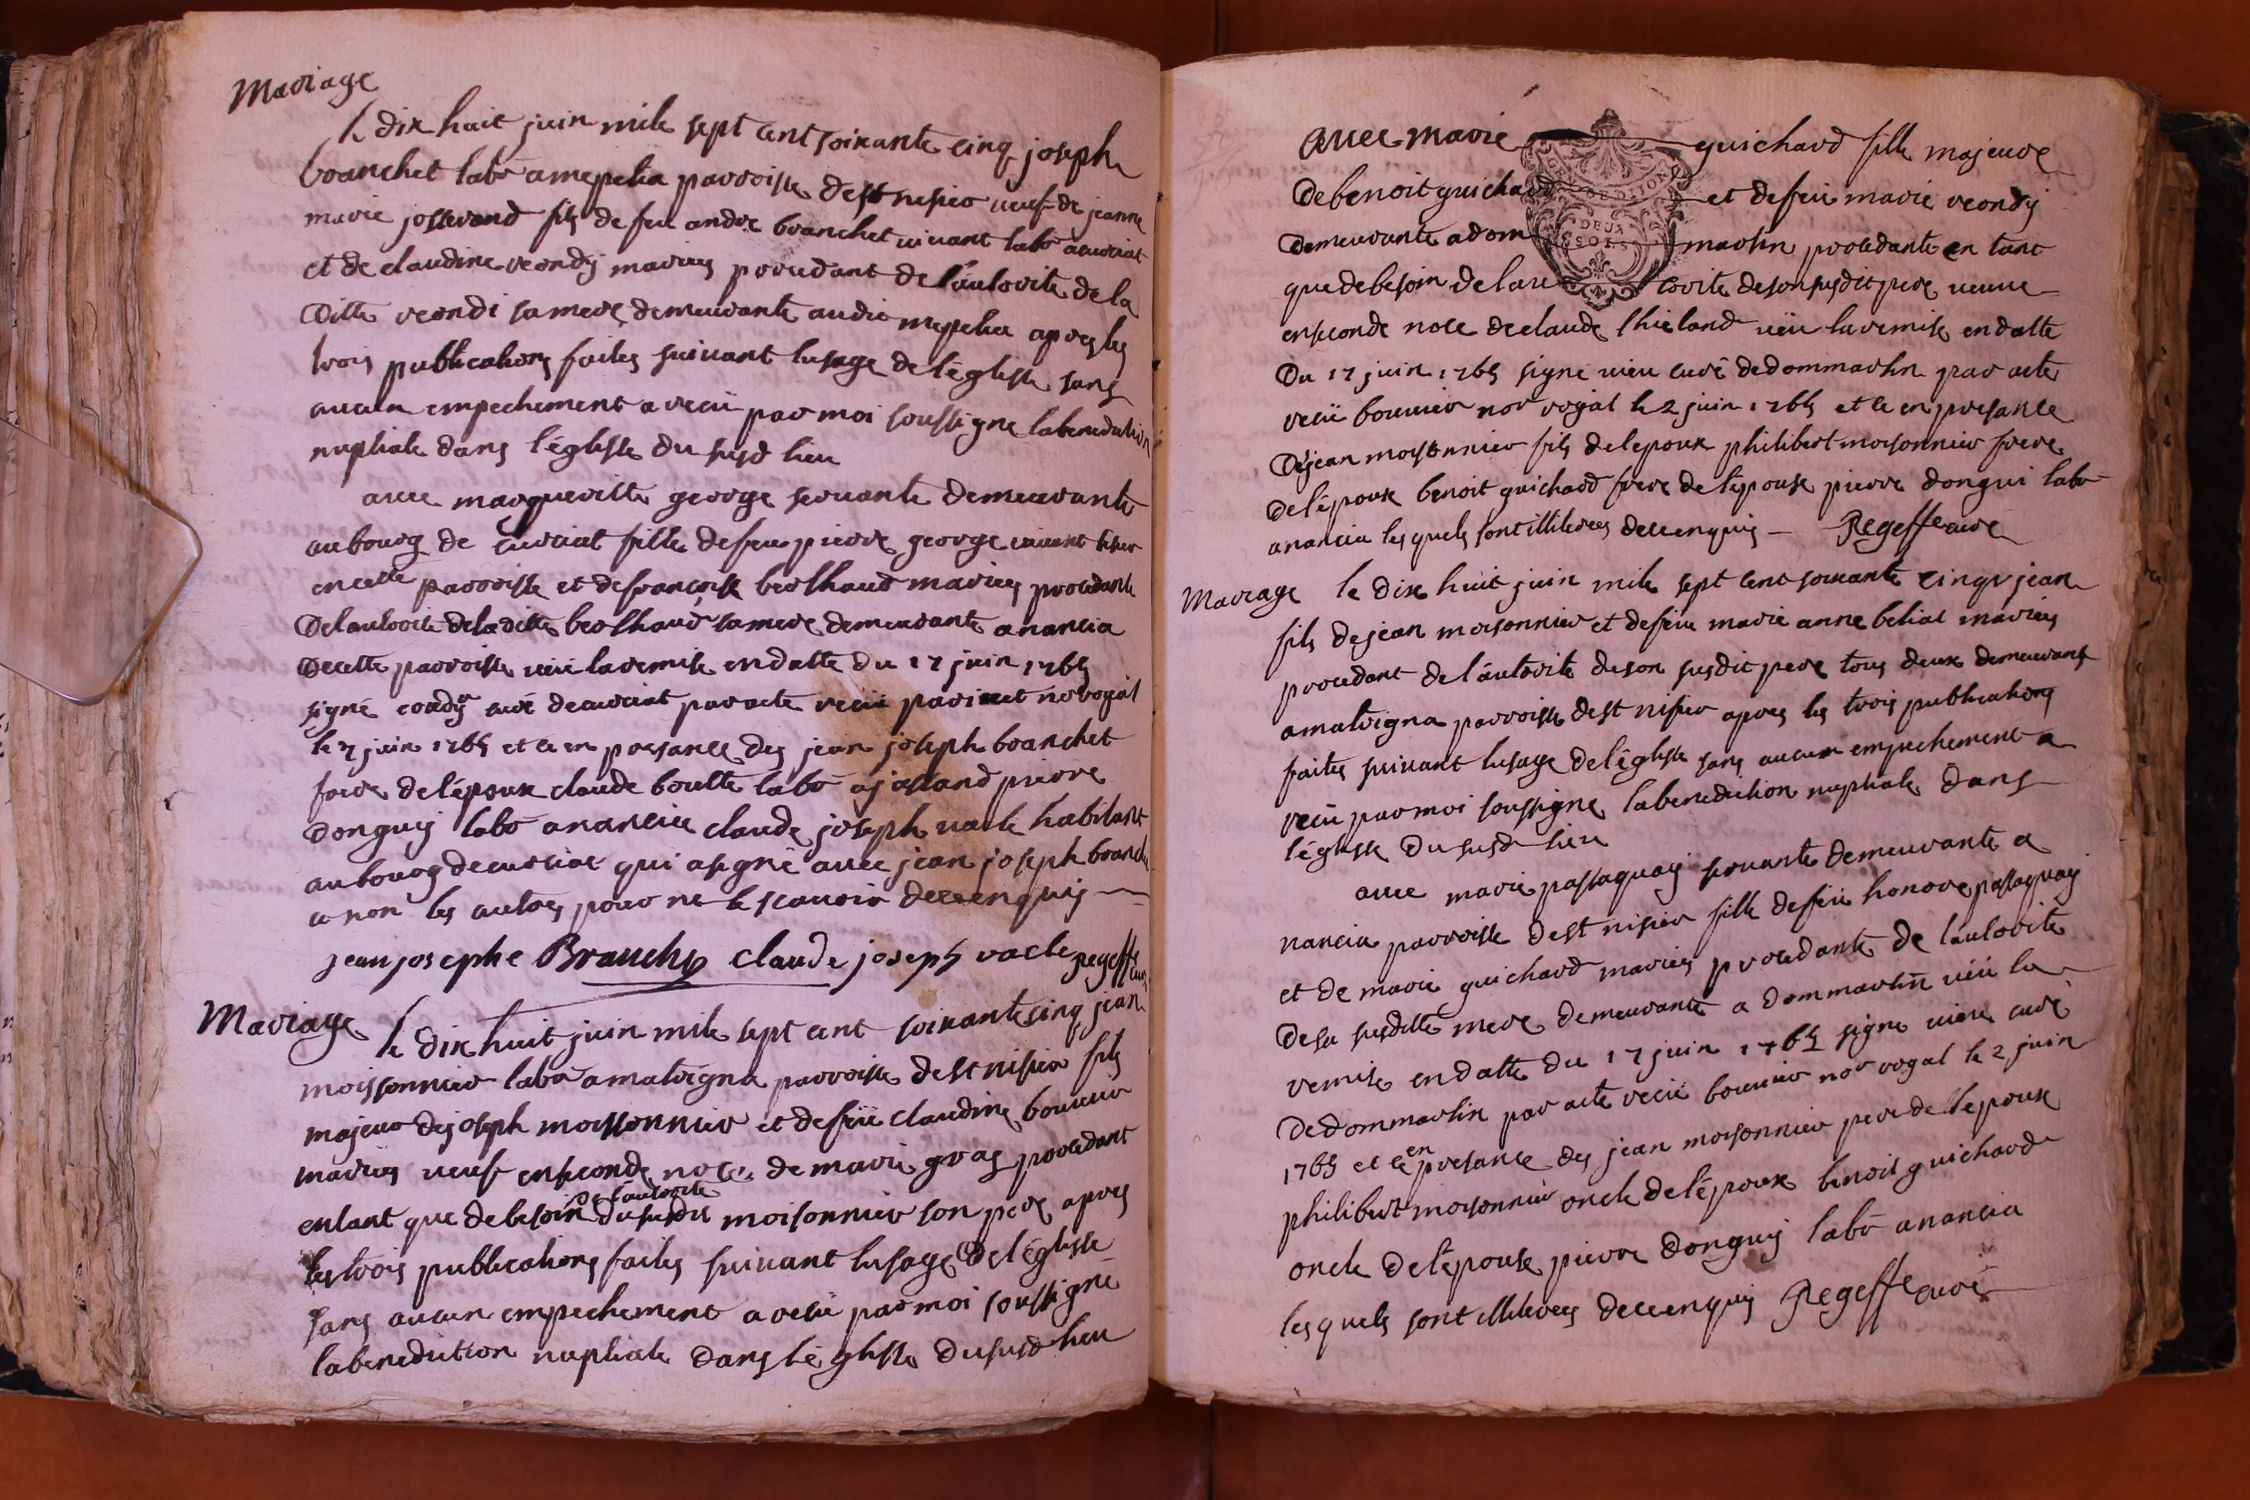 Mariage
le dix huit juin mile sept cent soixante cinq joseph
branchet labr a mepelia parroisse de st nisier veuf de jeanne
marie josserand fils de feu andre branchet vivant labr a curciat
et de claudine reondy mariés procedant de l'autorite de la
ditte reondi sa mere demeurante audit mepelia apres les
trois publications faites suivant lusage de l'église sans
aucun empechement a recu par moi soussigne la benediction
nuptiale dans l'églisse du susd lieu
avec margueritte george servante demeurante
au bourg de curciat fille de feu pierre george vivant
en cette parroisse et de francoise berthaud mariés procedante
de lautorite de la ditte berthaud sa mere demeurante a nancia
de cette parroisse veü la remise en datte du 17 juin 1765
signé curé de curciat par acte recü nor royal
le 7 juin 1765 et ce en presance des jean joseph branchet
frere de l'époux claude boutte labr a jassand pierre
donguy labr a nancia claude joseph vacle habitant
au bourg de curciat qui a signé avec jean joseph branchet
a non les autres pour ne le scavoir de ce enquis
jean josephe Branchy claude joseph vacle Regeffe curé
Mariage
le dix huit juin mile sept cent soixante cinq jean
moissonnier labr a malvigna parroisse de st nisier fils
majeur de joseph moissonnier et de feüe claudine bouvier
mariés veuf en seconde noce de marie gras procedant
de l'autorite
en tant que de besoin du susdit moisonnier son pere apres
les trois publications faites suivant lusage de l'églisse
sans aucun empechement a recü par moi soussigné
la benediction nuptiale dans l'églisse du susd lieu
avec marie guichard fille majeure
de benoit guichard et de feüe marie reondy
demeurante a dom martin procedante en tant
que de besoin de lau torite de son susdit pere veuve
en seconde noce de claude thieland veü la remise en datte
du 17 juin 1765 signé curé de dommartin par acte
recü bouvier nor royal le 2 juin 1765 et ce en presance
de jean moissonnier fils de lepoux philibert moisonnier frere
de l'époux benoit guichard frere de l'epouse pierre dongui labr
a nancia les quels sont illiteres de ce enquis Regeffe curé
Mariage
le dix huit juin mile sept cent soixante cinq jean
fils de jean moisonnier et de feüe marie anne beliat mariés
procedant de l'autorite de son susdit pere tous deux demeurants
a malvigna parroisse de st nisier apres les trois publications
faites suivant lusage de l'églisse sans aucun empechement a
recü par moi soussigne la benediction nuptiale dans
l'églisse du susd lieu
avec marie passaquay servante demeurante a
nancia parroisse de st nisier fille de feü honore passaquay
et de marie guichard mariés procedante de l'autorite
de sa susditte mere demeurante a dommartin veü la
remise en datte du 17 juin 1765 signe curé
de dommartin par acte recü bouvier nor royal le 2 juin
1765 et ce en presance des jean moisonnier pere de l'epoux
philibert moisonnier oncle de l'époux benoit guichard
oncle de l'epouse pierre donguy labr a nancia
les quels sont illiteres de ce enquis Regeffe curé
DEUX
SOLS